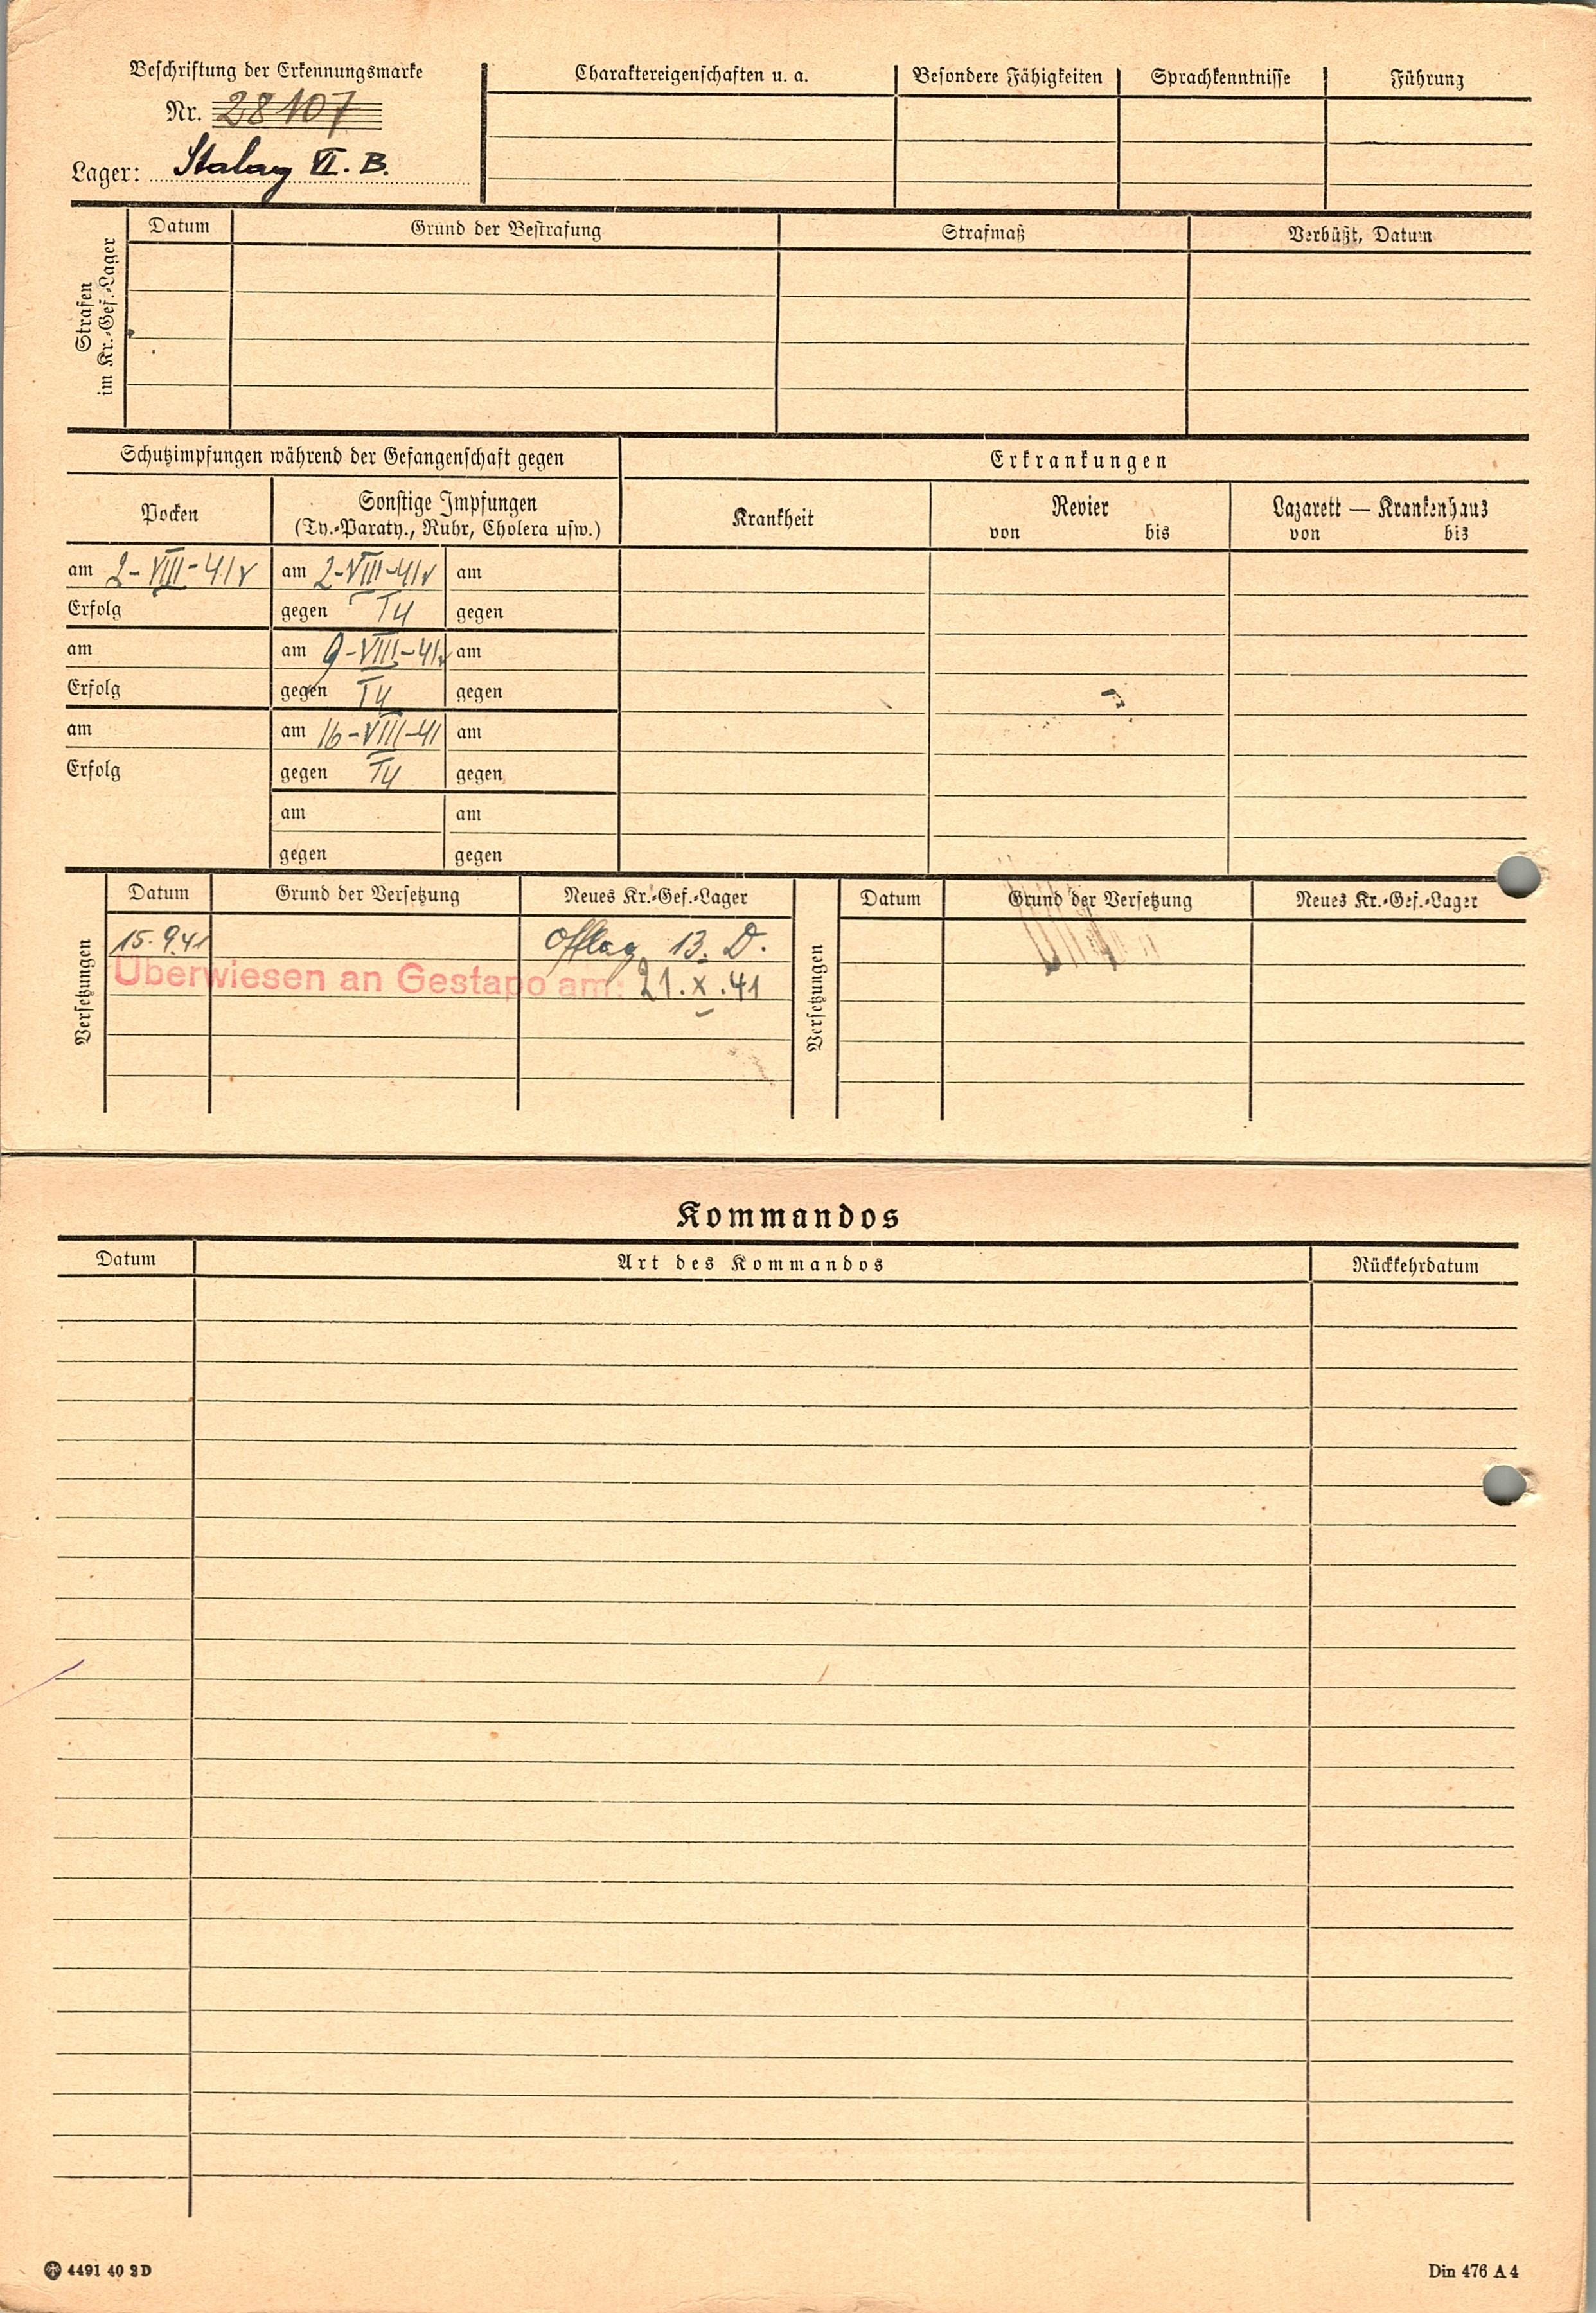 Beschriftung der Erkennungsmarke
Nr. 28107
Lager: Stalag VI. B.
Charaktereigenschaften u. a.
Besondere Fähigkeiten
Sprachkenntnisse
Führung
Strafen
im Kr.-Gef.-Lager
Datum
Grund der Bestrafung
Strafmaß
Verbüßt, Datum
Schutzimpfungen während der Gefangenschaft gegen
Erkrankungen
Pocken
Sonstige Impfungen
(Ty.-Paraty., Ruhr, Cholera usw.)
Krankheit
Revier
von bis
Lazarett — Krankenhaus
von bis
am 2-VIII-41 am 2-VIII-41 am
Erfolg gegen Ty gegen
am am 9-VIII-41 am
Erfolg gegen Ty gegen
am am 16-VIII-41 am
Erfolg gegen Ty gegen
am am
gegen gegen
Versetzungen
Datum Grund der Versetzung Neues Kr.-Gef.-Lager
15.9.41 Offlag 13. D.
Überwiesen an Gestapo am: 21.X.41
Versetzungen
Datum Grund der Versetzung Neues Kr.-Gef.-Lager
Kommandos
Datum Art des Kommandos Rückkehrdatum
4491 40 2D
Din 476 A 4